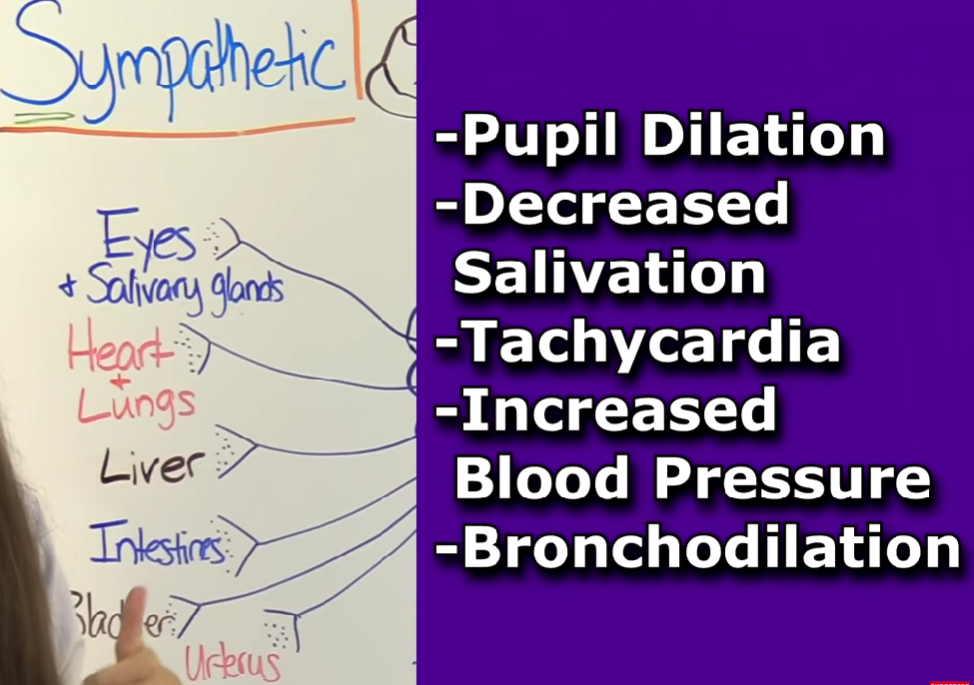 Sympathetic
Eyes
+ Salivary glands
Heart
+
Lungs
Liver
Intestines
Bladder
Urterus
-Pupil Dilation
-Decreased
Salivation
-Tachycardia
-Increased
Blood Pressure
-Bronchodilation